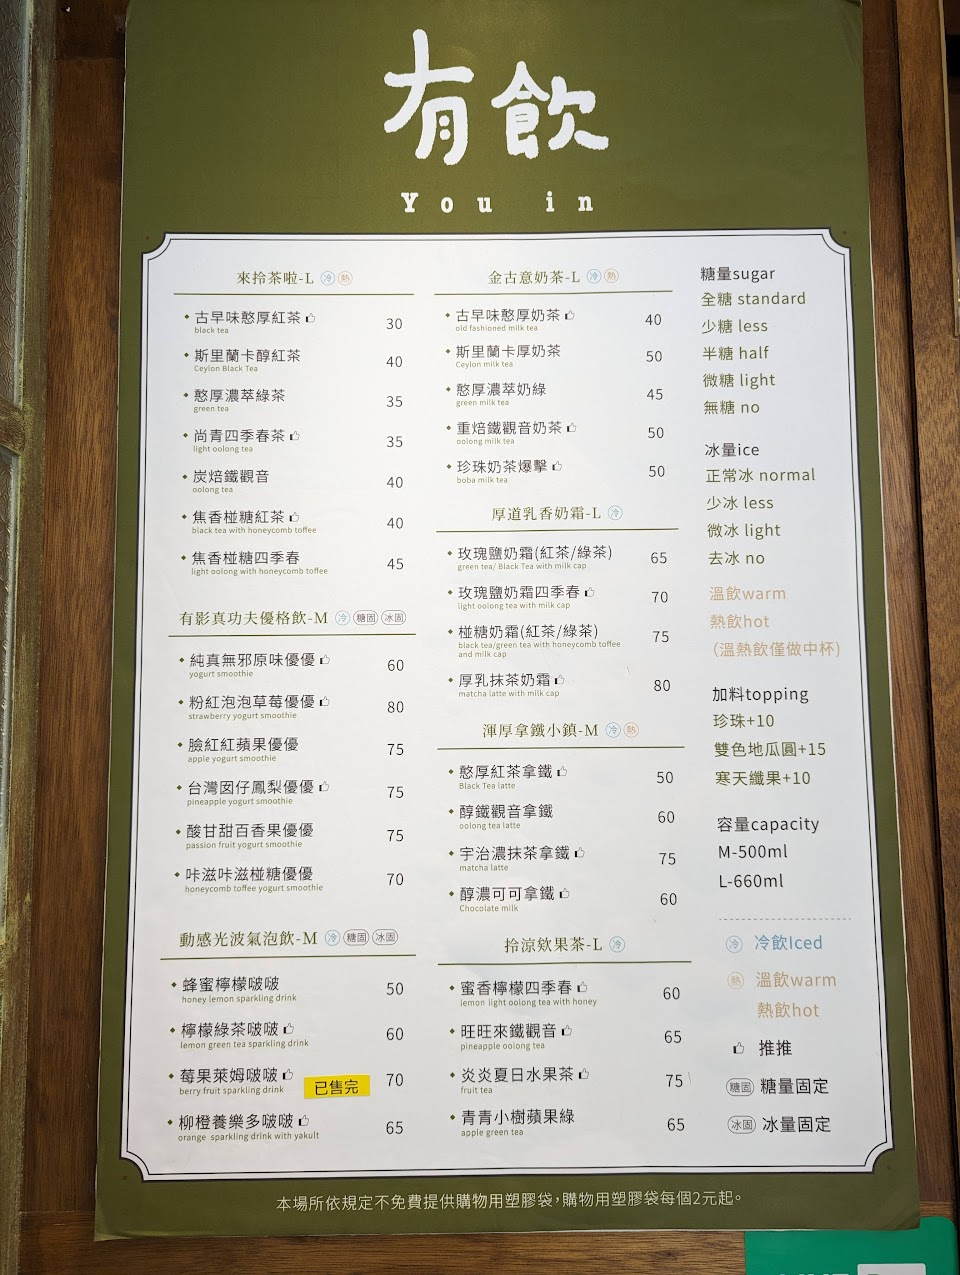 有飲
You in
來拎茶啦-L 冷 熱
古早味憨厚紅茶 30
black tea
斯里蘭卡醇紅茶 40
Ceylon Black Tea
憨厚濃萃綠茶 35
green tea
尚青四季春茶 35
light oolong tea
炭焙鐵觀音 40
oolong tea
焦香椪糖紅茶 40
black tea with honeycomb toffee
焦香椪糖四季春 45
light oolong with honeycomb toffee
有影真功夫優格飲-M 冷 糖固 冰固
純真無邪原味優優 60
yogurt smoothie
粉紅泡泡草莓優優 80
strawberry yogurt smoothie
臉紅紅蘋果優優 75
apple yogurt smoothie
台灣囡仔鳳梨優優 75
pineapple yogurt smoothie
酸甘甜百香果優優 75
passion fruit yogurt smoothie
咔滋咔滋椪糖優優 70
honeycomb toffee yogurt smoothie
動感光波氣泡飲-M 冷 糖固 冰固
蜂蜜檸檬啵啵 50
honey lemon sparkling drink
檸檬綠茶啵啵 60
lemon green tea sparkling drink
莓果萊姆啵啵 已售完 70
berry fruit sparkling drink
柳橙養樂多啵啵 65
orange sparkling drink with yakult
金古意奶茶-L 冷 熱
古早味憨厚奶茶 40
old fashioned milk tea
斯里蘭卡厚奶茶 50
Ceylon milk tea
憨厚濃萃奶綠 45
green milk tea
重焙鐵觀音奶茶 50
oolong milk tea
珍珠奶茶爆擊 50
boba milk tea
厚道乳香奶霜-L 冷
玫瑰鹽奶霜(紅茶/綠茶) 65
green tea/ Black Tea with milk cap
玫瑰鹽奶霜四季春 70
light oolong tea with milk cap
椪糖奶霜(紅茶/綠茶) 75
black tea/green tea with honeycomb toffee
and milk cap
厚乳抹茶奶霜 80
matcha latte with milk cap
渾厚拿鐵小鎮-M 冷 熱
憨厚紅茶拿鐵 50
Black Tea latte
醇鐵觀音拿鐵 60
oolong tea latte
宇治濃抹茶拿鐵 75
matcha latte
醇濃可可拿鐵 60
Chocolate milk
拎涼欸果茶-L 冷
蜜香檸檬四季春 60
lemon light oolong tea with honey
旺旺來鐵觀音 65
pineapple oolong tea
炎炎夏日水果茶 75
fruit tea
青青小樹蘋果綠 65
apple green tea
糖量sugar
全糖 standard
少糖 less
半糖 half
微糖 light
無糖 no
冰量ice
正常冰 normal
少冰 less
微冰 light
去冰 no
溫飲warm
熱飲hot
(溫熱飲僅做中杯)
加料topping
珍珠+10
雙色地瓜圓+15
寒天纖果+10
容量capacity
M-500ml
L-660ml
冷 冷飲Iced
熱 溫飲warm
熱飲hot
推推
糖固 糖量固定
冰固 冰量固定
本場所依規定不免費提供購物用塑膠袋,購物用塑膠袋每個2元起。